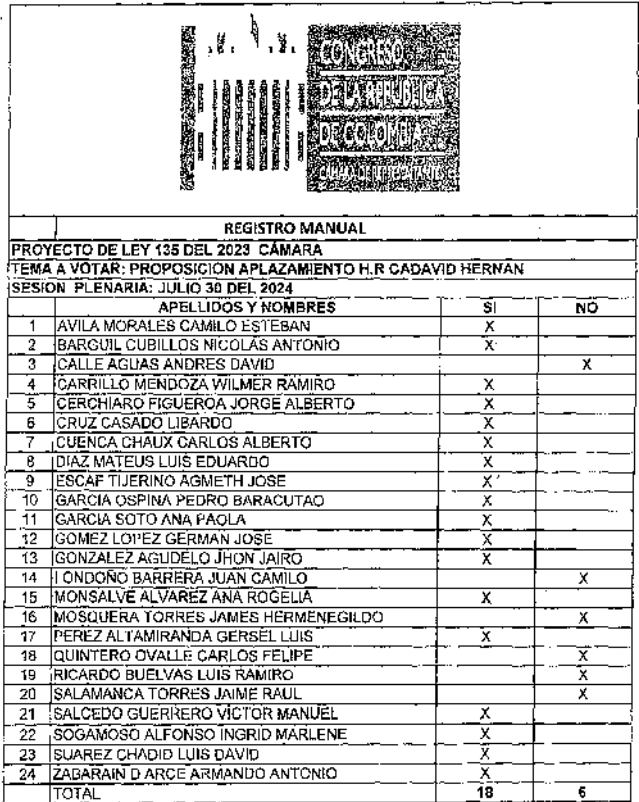 CONGRESO
DE LA REPÚBLICA
DE COLOMBIA
CÁMARA DE REPRESENTANTES
REGISTRO MANUAL
PROYECTO DE LEY 135 DEL 2023 CÁMARA
TEMA A VOTAR: PROPOSICION APLAZAMIENTO H.R CADAVID HERNAN
SESION PLENARIA: JULIO 30 DEL 2024
APELLIDOS Y NOMBRES SI NO
1 AVILA MORALES CAMILO ESTEBAN X
2 BARGUIL CUBILLOS NICOLÁS ANTONIO X
3 CALLE AGUAS ANDRES DAVID X
4 CARRILLO MENDOZA WILMER RAMIRO X
5 CERCHIARO FIGUEROA JORGE ALBERTO X
6 CRUZ CASADO LIBARDO X
7 CUENCA CHAUX CARLOS ALBERTO X
8 DIAZ MATEUS LUIS EDUARDO X
9 ESCAF TIJERINO AGMETH JOSE X
10 GARCIA OSPINA PEDRO BARACUTAO X
11 GARCIA SOTO ANA PAOLA X
12 GOMEZ LOPEZ GERMAN JOSE X
13 GONZALEZ AGUDELO JHON JAIRO X
14 LONDOÑO BARRERA JUAN CAMILO X
15 MONSALVE ALVAREZ ANA ROGELIA X
16 MOSQUERA TORRES JAMES HERMENEGILDO X
17 PEREZ ALTAMIRANDA GERSEL LUIS X
18 QUINTERO OVALLE CARLOS FELIPE X
19 RICARDO BUELVAS LUIS RAMIRO X
20 SALAMANCA TORRES JAIME RAUL X
21 SALCEDO GUERRERO VICTOR MANUEL X
22 SOGAMOSO ALFONSO INGRID MARLENE X
23 SUAREZ CHADID LUIS DAVID X
24 ZABARAIN D ARCE ARMANDO ANTONIO X
TOTAL 18 6